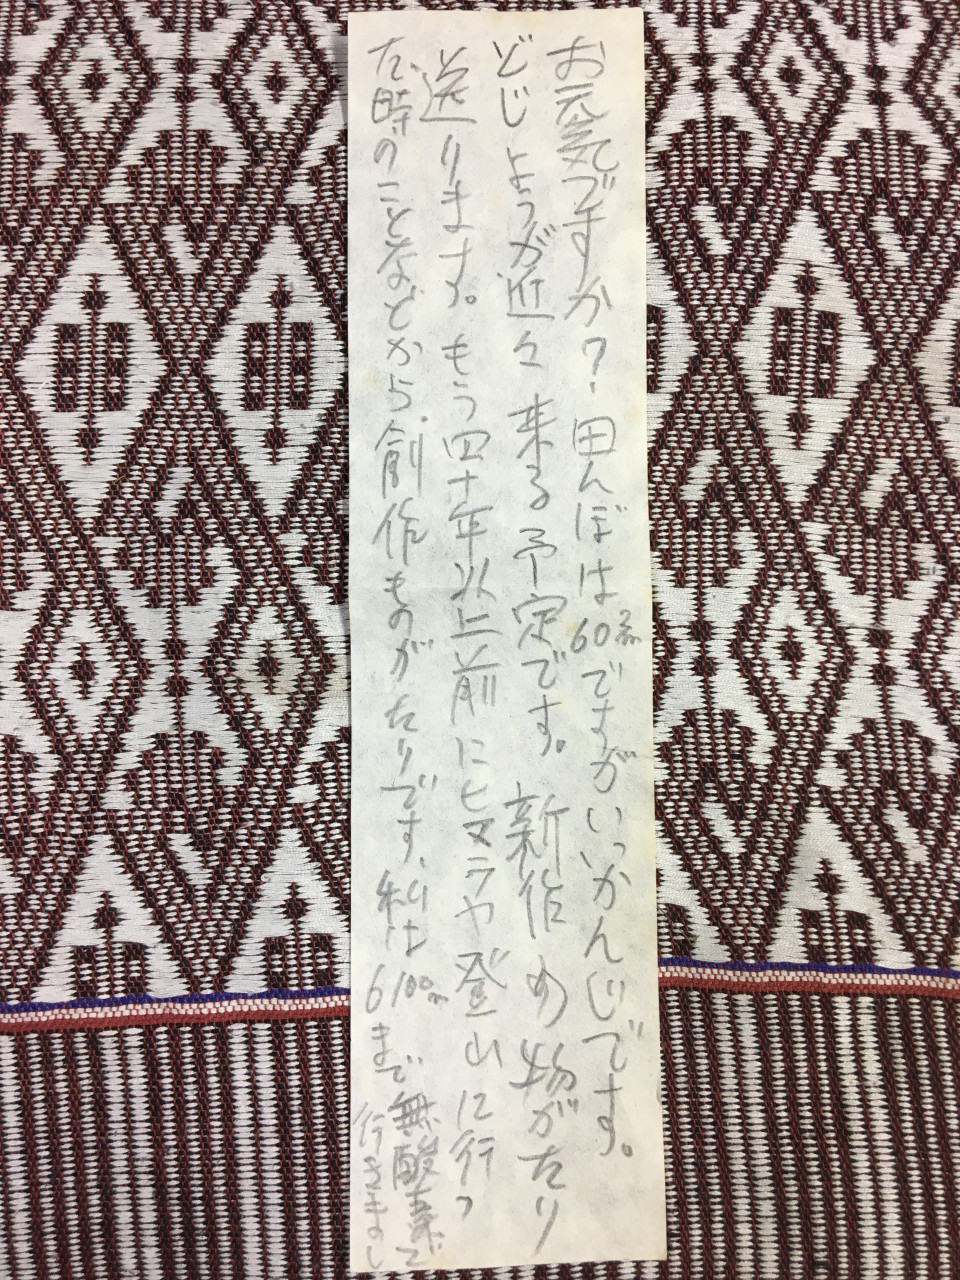 お元気ですか?田んぼは60%ですがいいかんじです。
どじょうが近々来る予定です。新作の物がたり
送ります。もう四十年以上前にヒマラヤ登山に行っ
た時のことなどから、創作ものがたりです、私は6100mまで無酸素で
行きまし